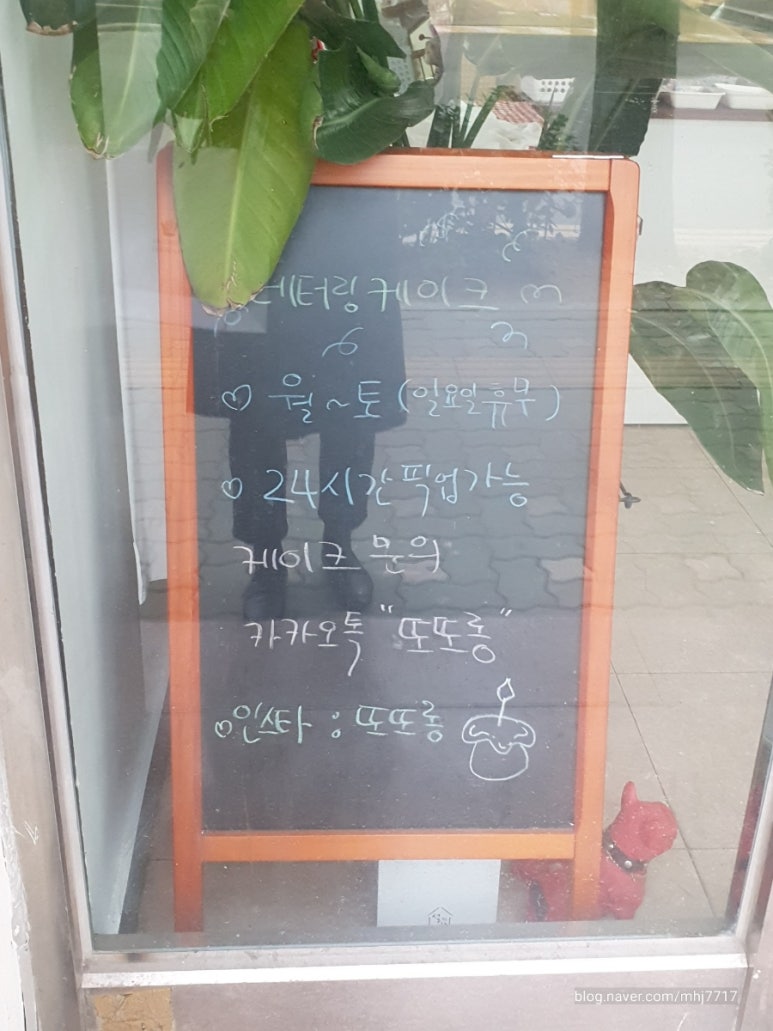 레터링케이크
♡ 월~토 (일요일휴무)
♡ 24시간픽업가능
케이크 문의
카카오톡 "또또롱"
♡인스타 : 또또롱
blog.naver.com/mhj7717